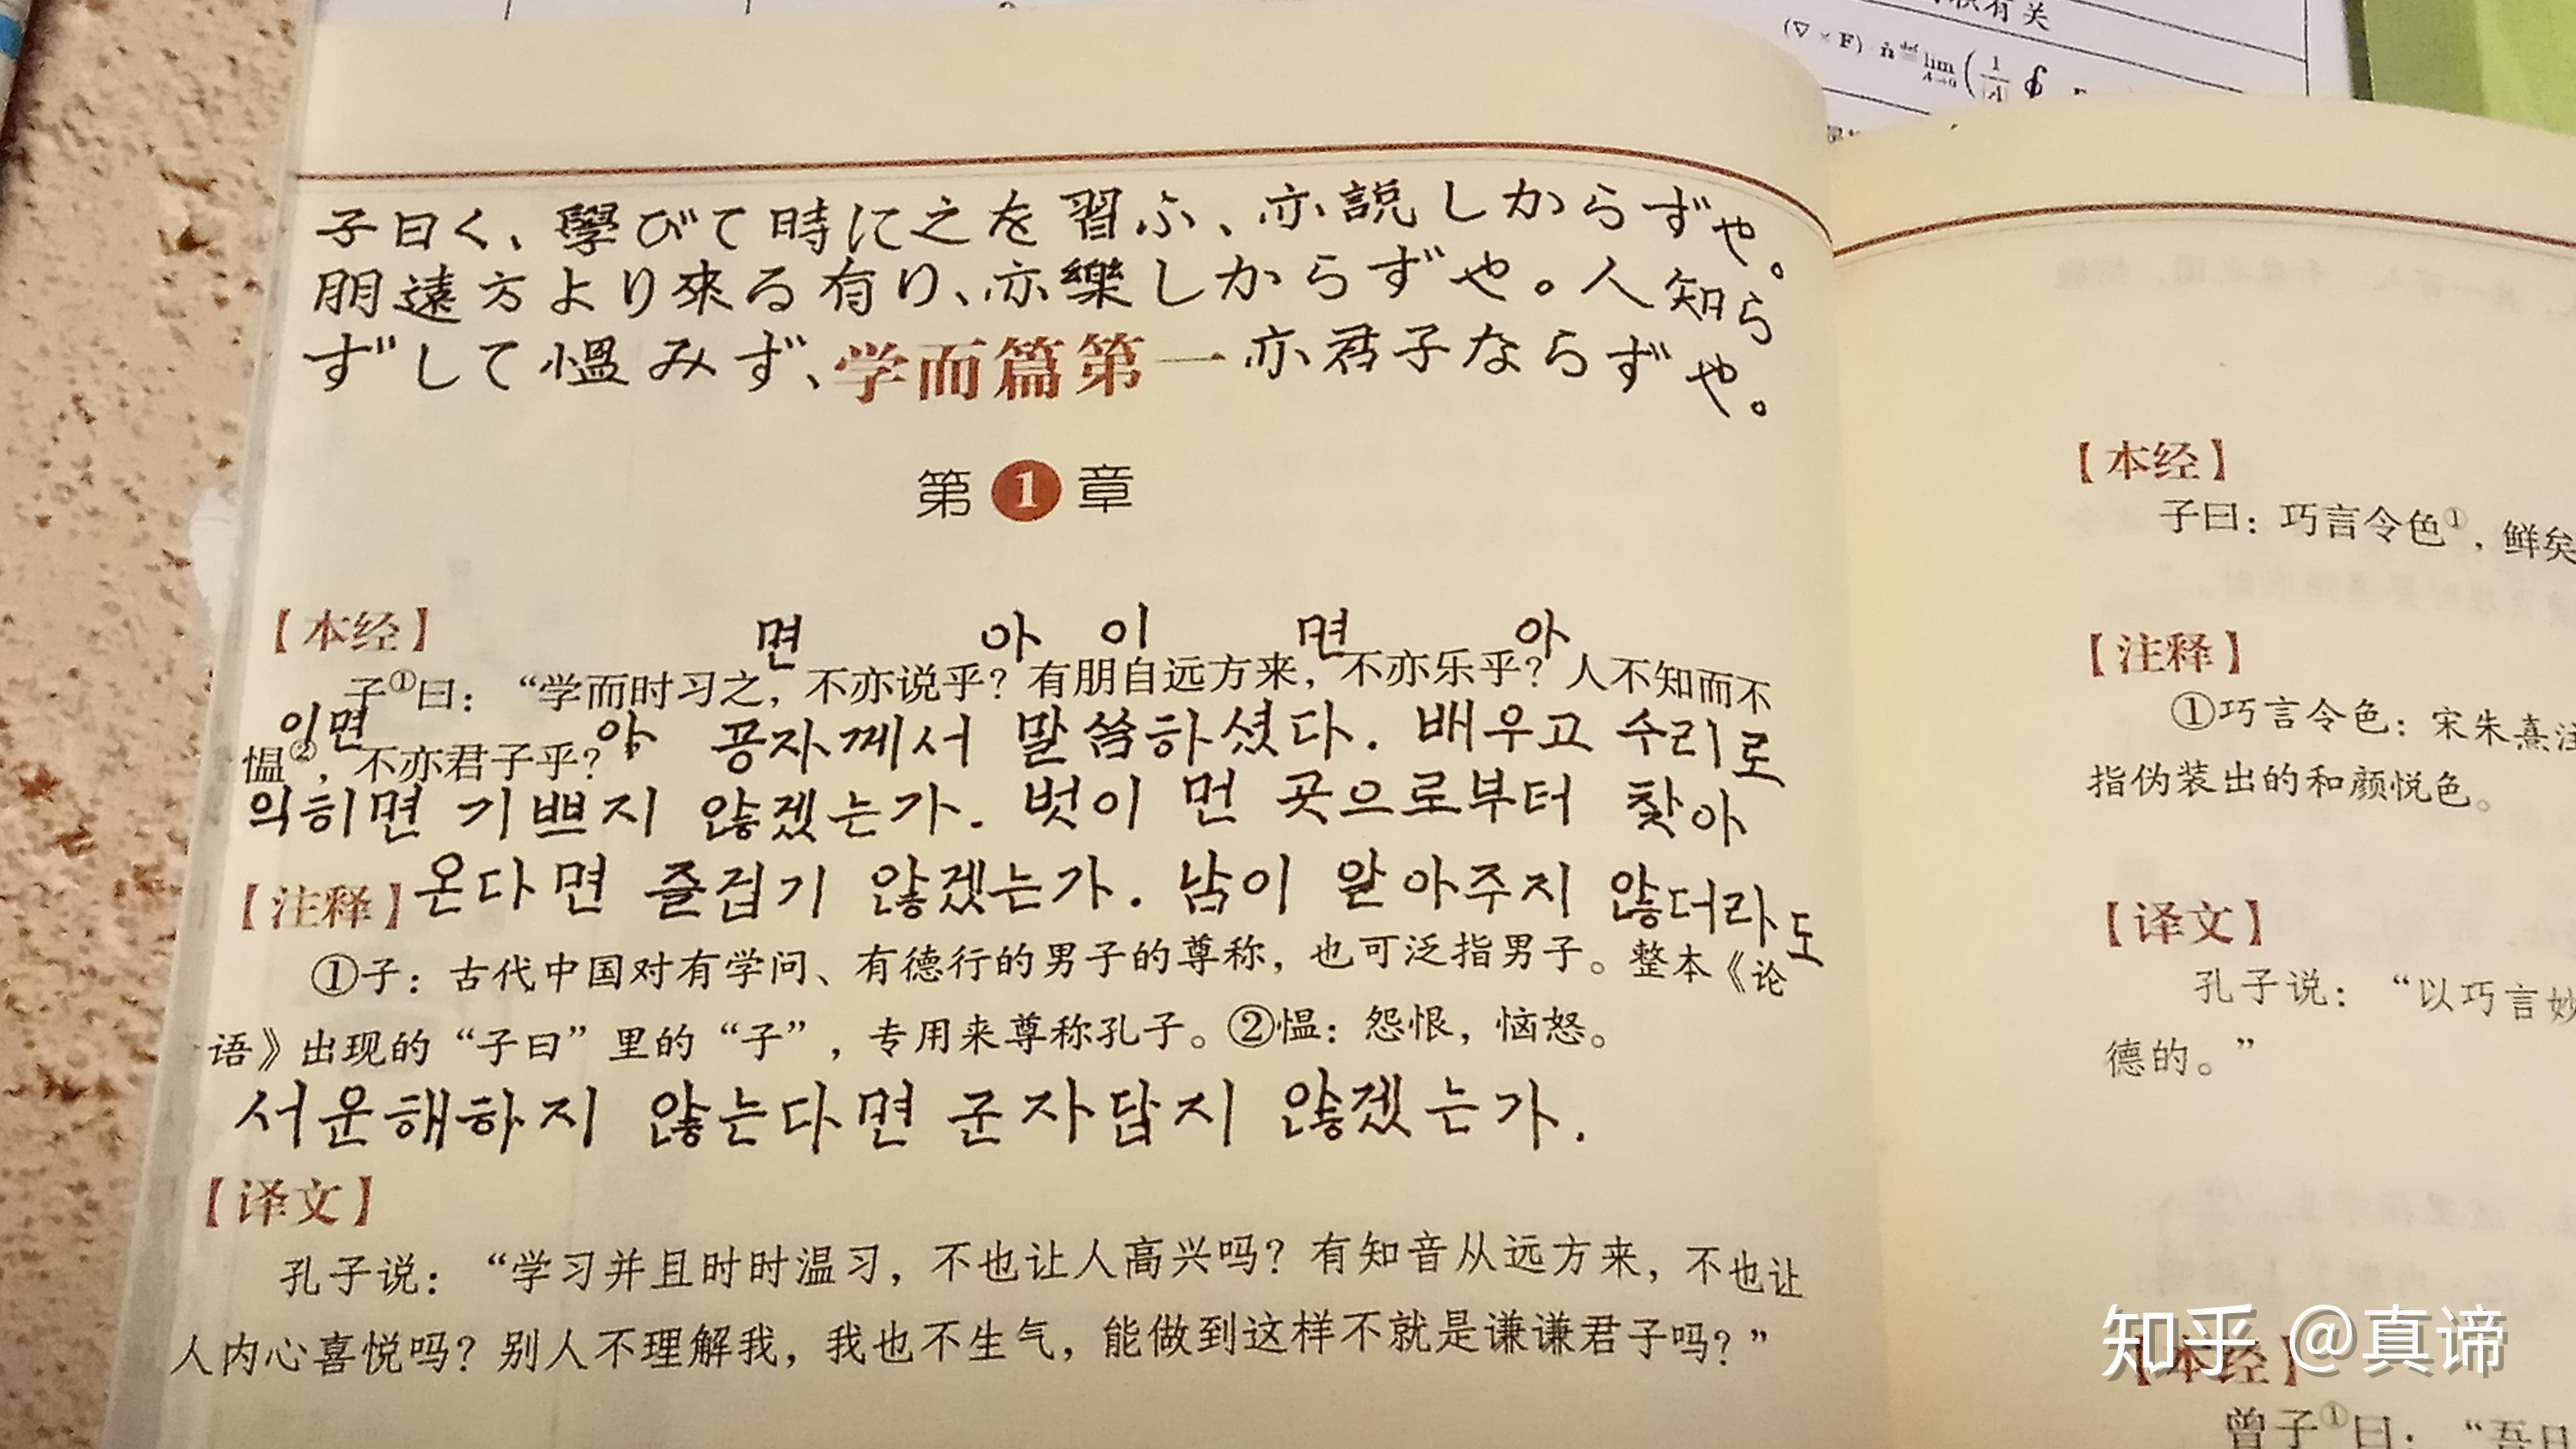 积有关
(∇ × F) · n̂ def lim A→0 ( 1 |A| ∮
子曰く、學びて時に之を習ふ、亦説しからずや。
朋遠方より來る有り、亦樂しからずや。人知ら
ずして慍みず、亦君子ならずや。
学而篇第一
第1章
【本经】
면 아 이 면 아
子①曰：“学而时习之，不亦说乎？有朋自远方来，不亦乐乎？人不知而不
이면 아
愠②，不亦君子乎？
공자께서 말씀하셨다. 배우고 수리로
익히면 기쁘지 않겠는가. 벗이 먼 곳으로부터 찾아
온다면 즐겁기 않겠는가. 남이 알아주지 않더라도
【注释】
①子：古代中国对有学问、有德行的男子的尊称，也可泛指男子。整本《论
语》出现的“子曰”里的“子”，专用来尊称孔子。②愠：怨恨，恼怒。
서운해하지 않는다면 군자답지 않겠는가.
【译文】
孔子说：“学习并且时时温习，不也让人高兴吗？有知音从远方来，不也让
人内心喜悦吗？别人不理解我，我也不生气，能做到这样不就是谦谦君子吗？”
【本经】
子曰：巧言令色①，鲜矣
【注释】
①巧言令色：宋朱熹注
指伪装出的和颜悦色。
【译文】
孔子说：“以巧言妙
德的。”
【本经】
曾子①曰：“吾日
知乎 @真谛